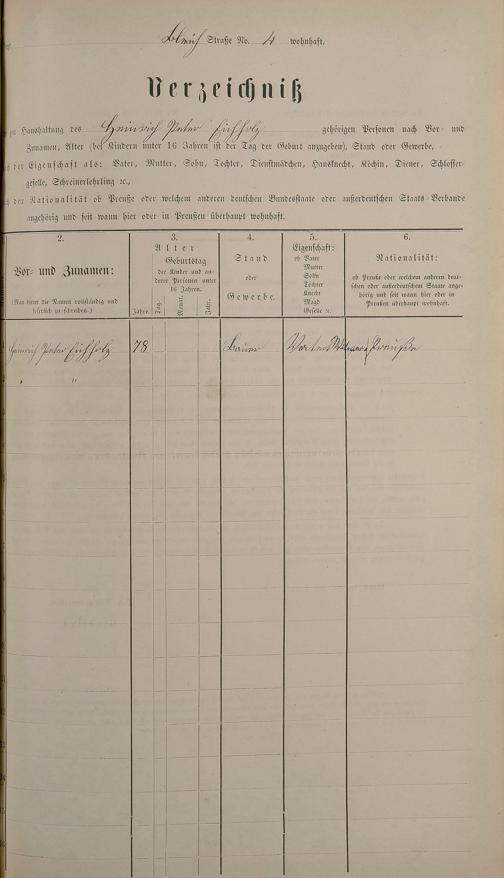 Bleich Straße No. 4 wohnhaft.
Verzeichniß
Haushaltung des Heinrich Peter Eichholz gehörigen Personen nach Vor- und
Zunamen, Alter (bei Kindern unter 16 Jahren ist der Tag der Geburt anzugeben), Stand oder Gewerbe,
der Eigenschaft als: Vater, Mutter, Sohn, Tochter, Dienstmädchen, Hausknecht, Köchin, Diener, Schlosser-
geselle, Schreinerlehrling ꝛc.,
der Nationalität ob Preuße oder welchem anderen deutschen Bundesstaate oder außerdeutschen Staats-Verbande
angehörig und seit wann hier oder in Preußen überhaupt wohnhaft.
2.
Vor- und Zunamen:
(Man bittet die Namen vollständig und
leserlich zu schreiben.)
3.
Alter
Geburtstag
der Kinder und an-
derer Personen unter
16 Jahren.
Jahre.
Tag.
Monat.
Jahr.
4.
Stand
oder
Gewerbe.
5.
Eigenschaft:
ob Vater
Mutter
Sohn
Tochter
Knecht
Magd
Geselle ꝛc.
6.
Nationalität:
ob Preuße oder welchem anderen deut-
schen oder außerdeutschen Staate ange-
hörig und seit wann hier oder in
Preußen überhaupt wohnhaft.
Heinrich Peter Eichholz 78 Bauer Vater Preuße
" "